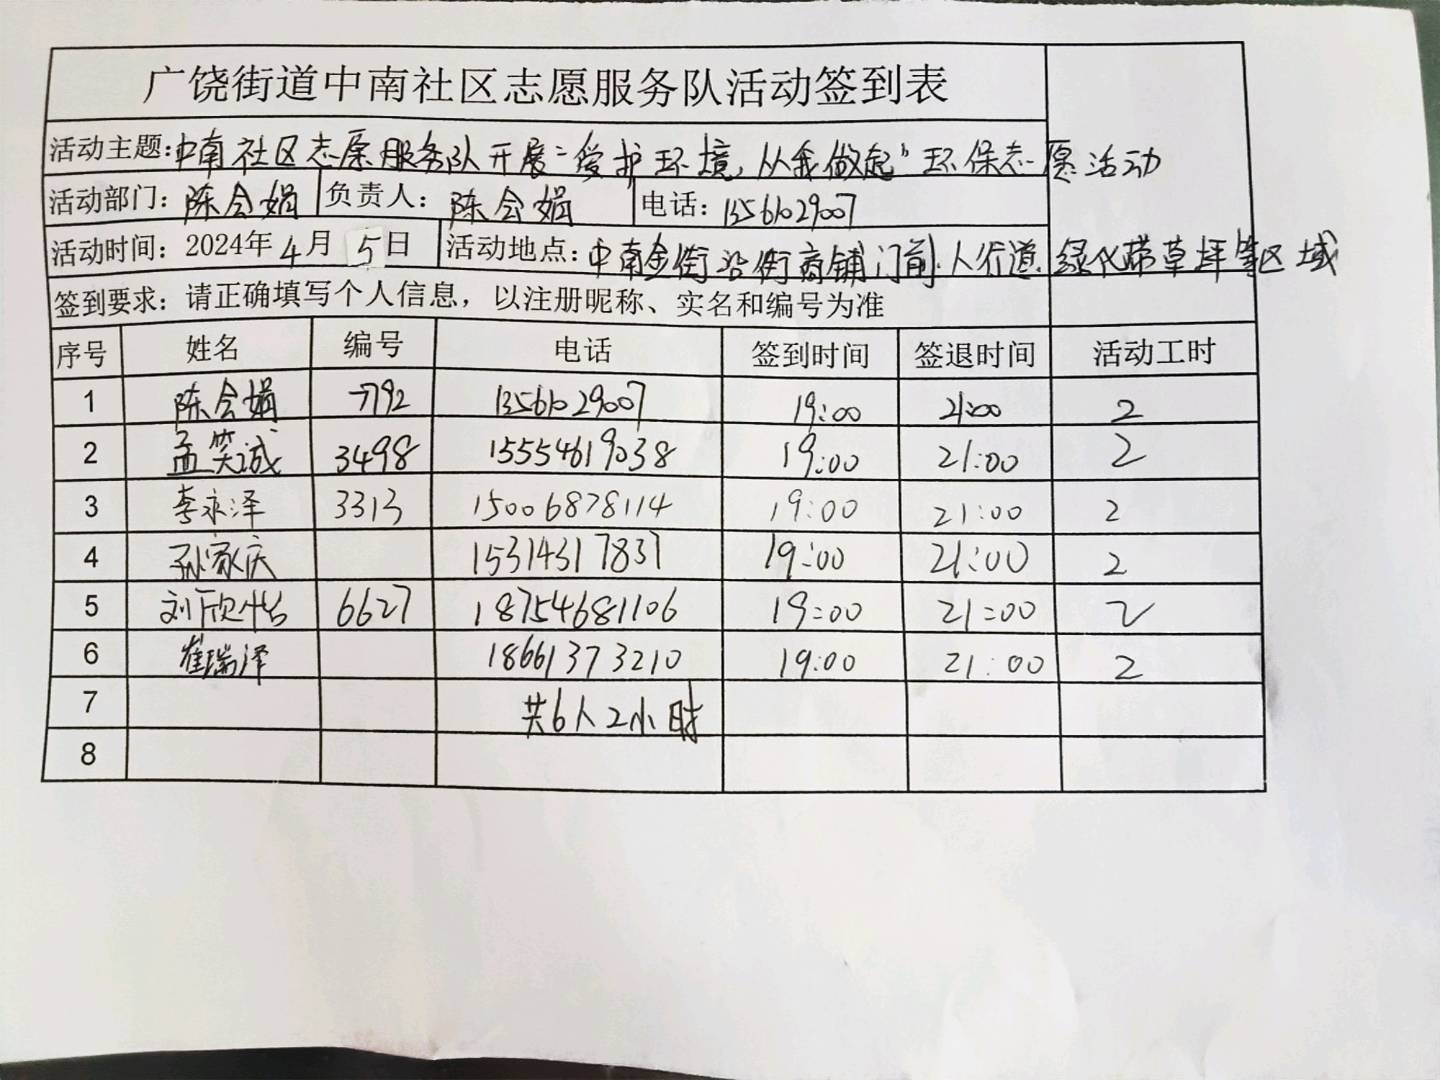 广饶街道中南社区志愿服务队活动签到表
活动主题：中南社区志愿服务队开展“爱护环境，从我做起”环保志愿活动
活动部门：陈会娟 负责人：陈会娟 电话：13561029007
活动时间：2024年4月5日 活动地点：中南金街沿街商铺门前、人行道、绿化带草坪等区域
签到要求：请正确填写个人信息，以注册昵称、实名和编号为准
序号 姓名 编号 电话 签到时间 签退时间 活动工时
1 陈会娟 7792 13561029007 19:00 21:00 2
2 孟笑诚 3498 15554619038 19:00 21:00 2
3 李永泽 3313 15006878114 19:00 21:00 2
4 孙家庆 15314317837 19:00 21:00 2
5 刘欣怡 6627 18754681106 19:00 21:00 2
6 崔瑞泽 18661373210 19:00 21:00 2
7 共6人2小时
8